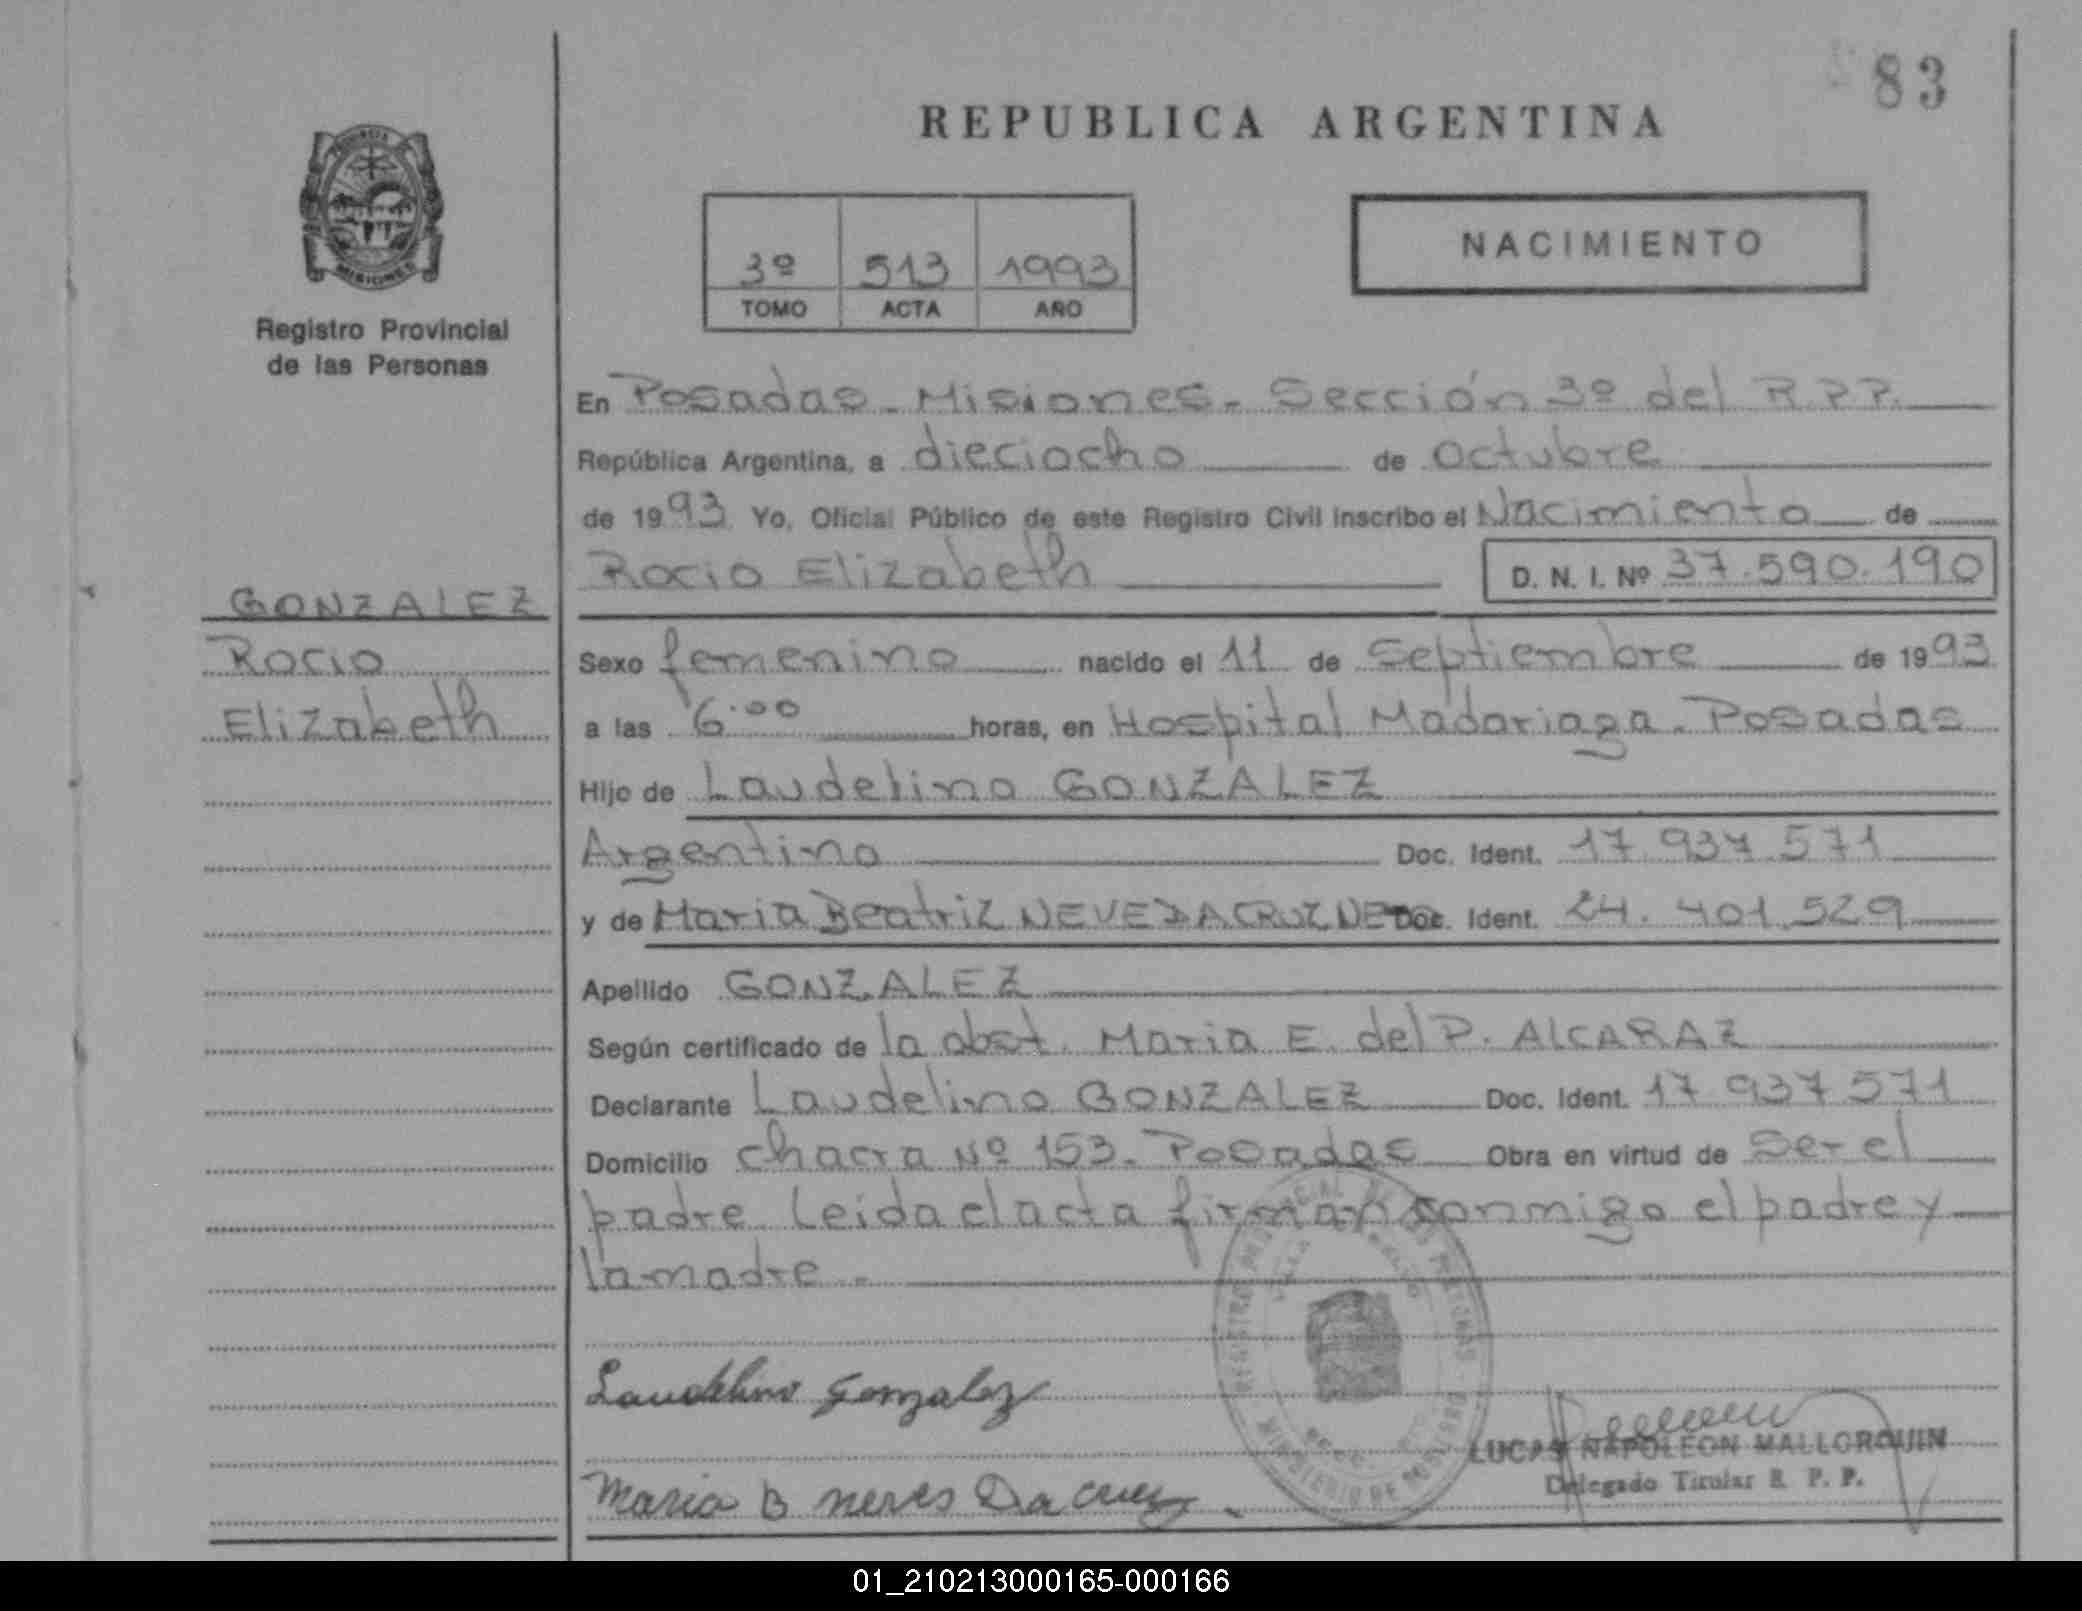 83
REPUBLICA ARGENTINA
MISIONES
Registro Provincial
de las Personas
NACIMIENTO
3º 513 1993
TOMO ACTA AÑO
En Posadas - Misiones - Sección 3º del R.P.P.
República Argentina, a dieciocho de octubre
de 1993 Yo, Oficial Público de este Registro Civil inscribo el Nacimiento de
Rocio Elizabeth D. N. I. Nº 37.590.190
GONZALEZ
Rocio
Elizabeth
Sexo femenino nacido el 11 de Septiembre de 1993
a las 6:00 horas, en Hospital Madariaga - Posadas
Hijo de Laudelino GONZALEZ
Argentino Doc. Ident. 17.937.571
y de Maria Beatriz Doc. Ident. 24.401.529
Apellido GONZALEZ
Según certificado de la obst. Maria E. del P. ALCARAZ
Declarante Laudelino GONZALEZ Doc. Ident. 17 937 571
Domicilio chacra Nº 153 - Posadas Obra en virtud de Ser el
padre Leida el acta firman conmigo el padre y
la madre.
REGISTRO PROVINCIAL DE LAS PERSONAS
Laudelino Gonzalez
LUCAS NAPOLEON MALLORQUIN
Delegado Titular R. P. P.
Maria B neves Da cruz
01_210213000165-000166